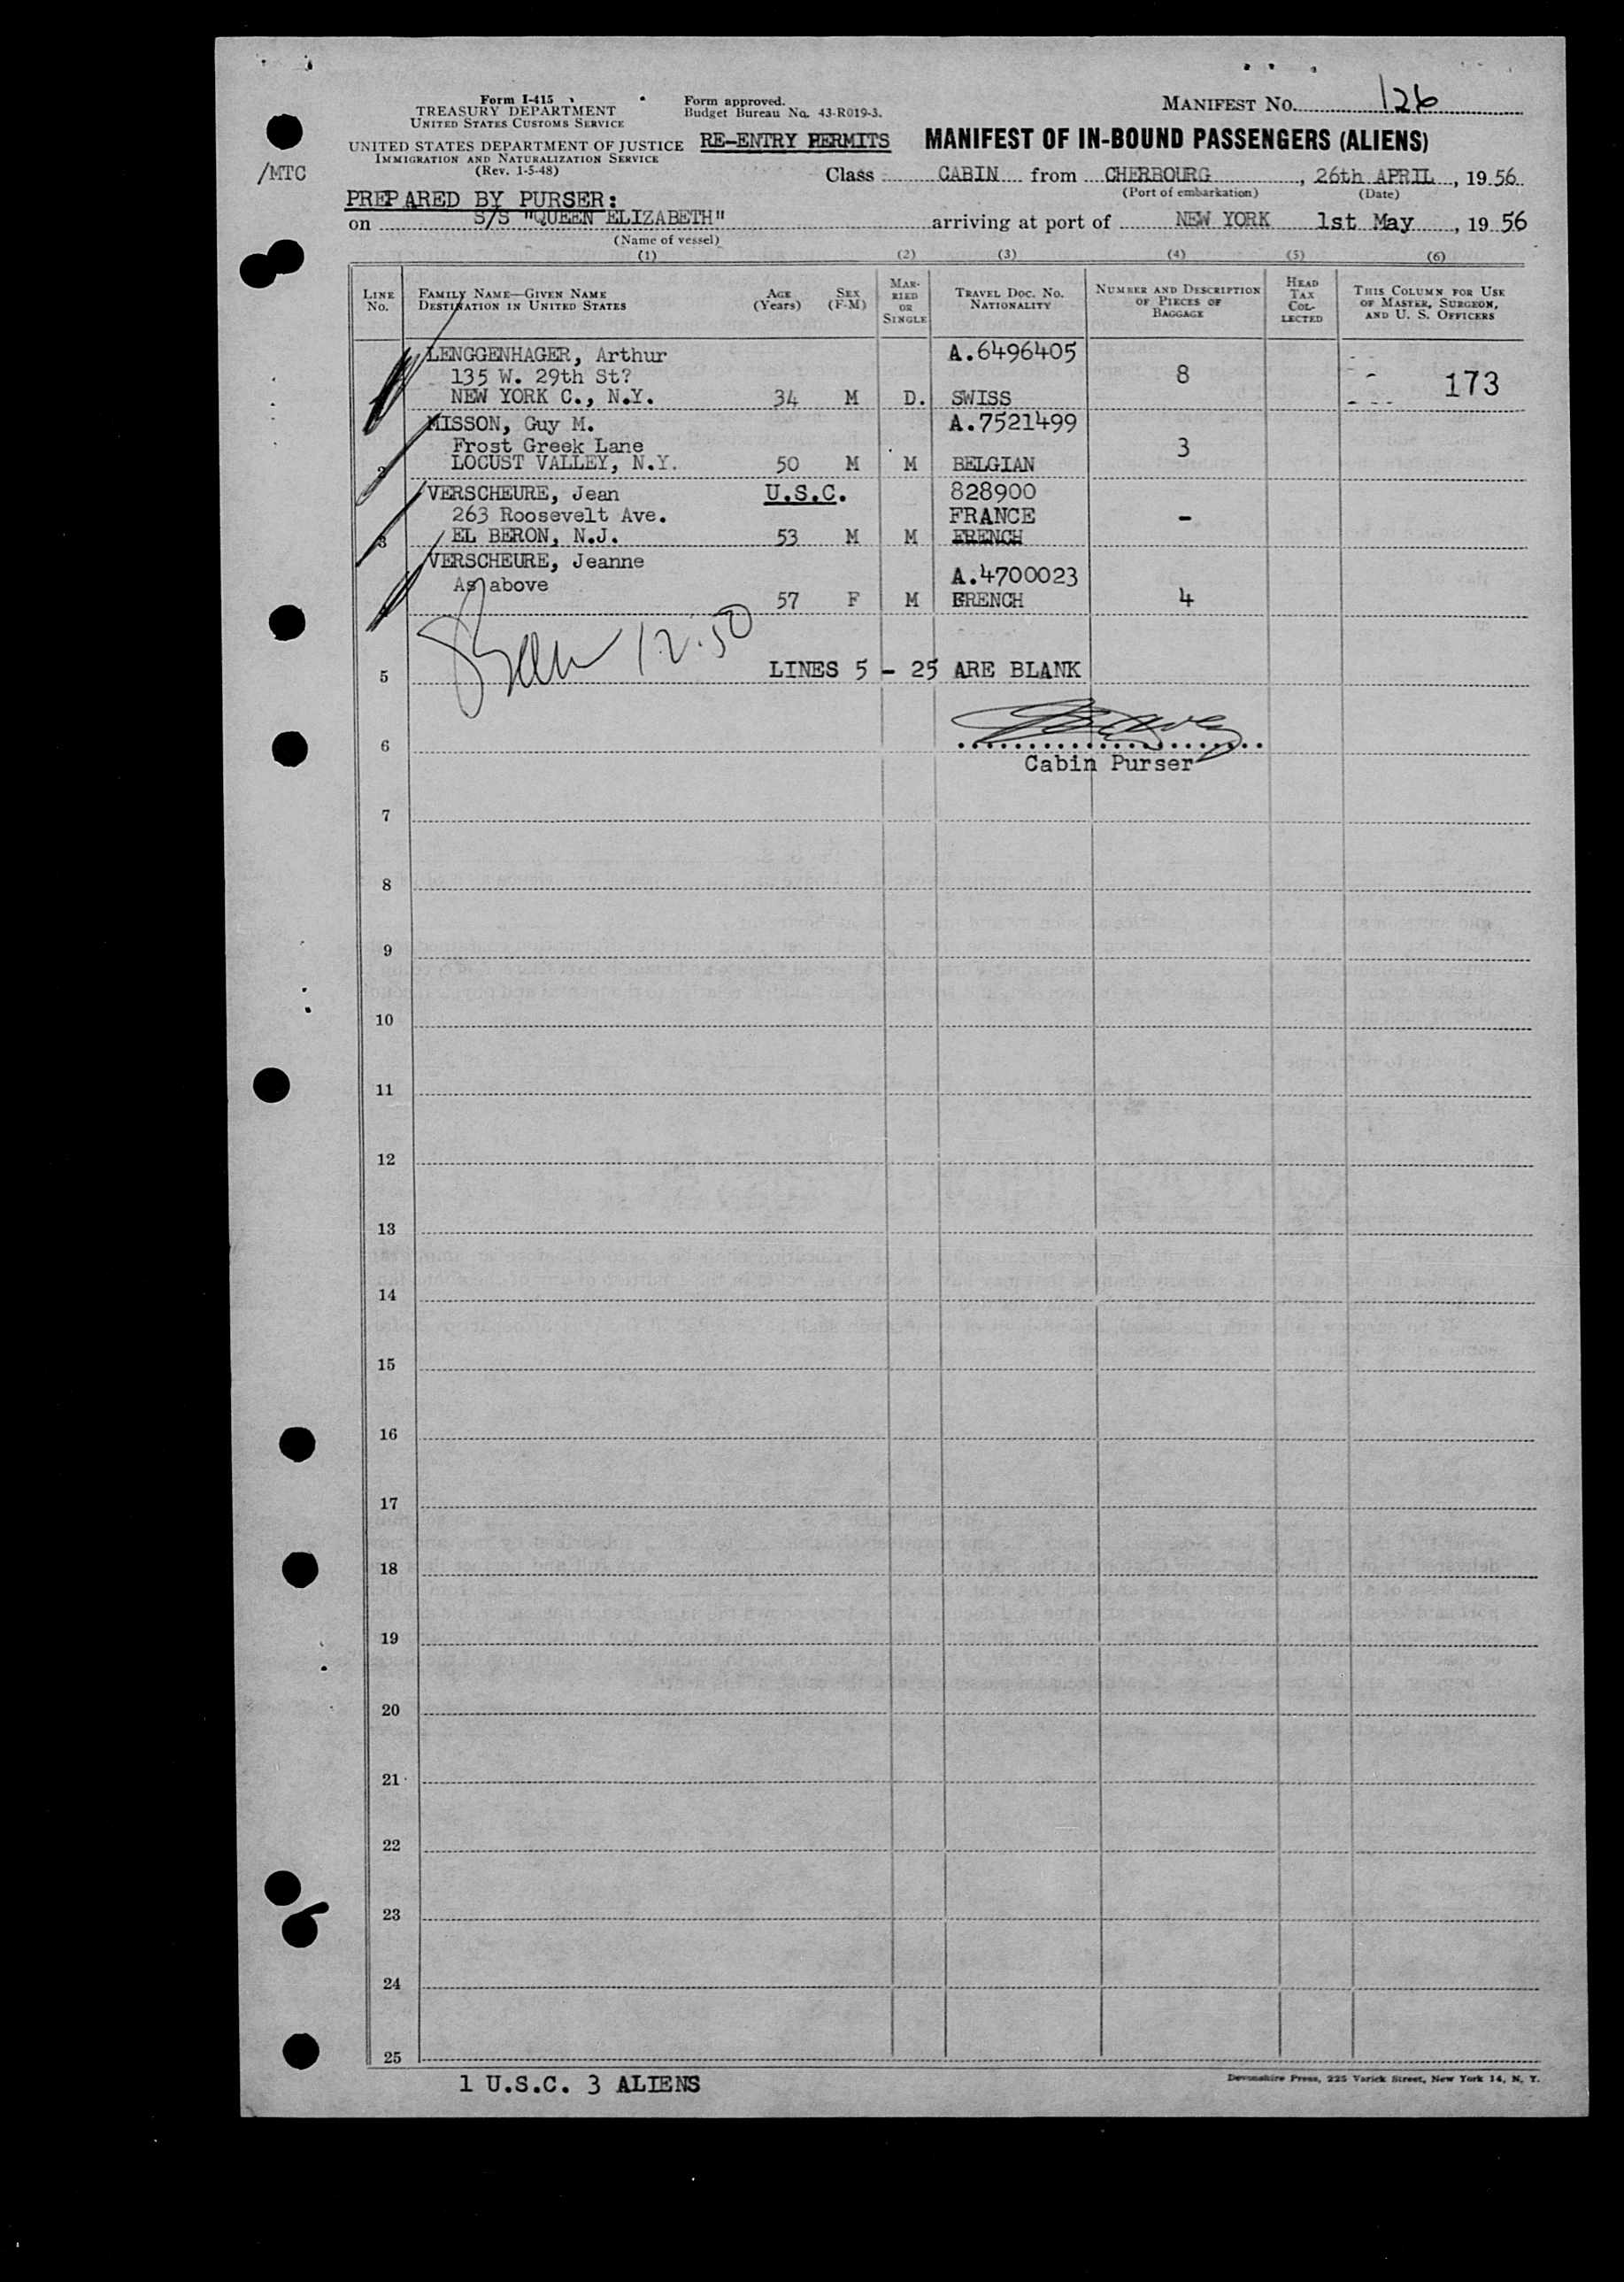 Form I-415
TREASURY DEPARTMENT
UNITED STATES CUSTOMS SERVICE
UNITED STATES DEPARTMENT OF JUSTICE
IMMIGRATION AND NATURALIZATION SERVICE
(Rev. 1-5-48)
/MTC
Form approved.
Budget Bureau No. 43-R019-3.
RE-ENTRY PERMITS
MANIFEST NO. 126
MANIFEST OF IN-BOUND PASSENGERS (ALIENS)
Class CABIN from CHERBOURG, 26th APRIL, 1956
(Port of embarkation) (Date)
PREPARED BY PURSER:
on S/S "QUEEN ELIZABETH" arriving at port of NEW YORK 1st May, 1956
(Name of vessel)
(1) (2) (3) (4) (5) (6)
LINE No.
FAMILY NAME—GIVEN NAME
DESTINATION IN UNITED STATES
AGE (Years)
SEX (F-M)
MARRIED OR SINGLE
TRAVEL DOC. NO.
NATIONALITY
NUMBER AND DESCRIPTION OF PIECES OF BAGGAGE
HEAD TAX COLLECTED
THIS COLUMN FOR USE OF MASTER, SURGEON, AND U. S. OFFICERS
LENGGENHAGER, Arthur A.6496405
135 W. 29th St? 8 173
NEW YORK C., N.Y. 34 M D. SWISS
MISSON, Guy M. A.7521499
Frost Greek Lane 3
2 LOCUST VALLEY, N.Y. 50 M M BELGIAN
VERSCHEURE, Jean U.S.C. 828900
263 Roosevelt Ave. FRANCE -
3 EL BERON, N.J. 53 M M FRENCH
VERSCHEURE, Jeanne
As above A.4700023
4 57 F M FRENCH 4
12.50
5 LINES 5 - 25 ARE BLANK
6
Cabin Purser
7
8
9
10
11
12
13
14
15
16
17
18
19
20
21
22
23
24
25
1 U.S.C. 3 ALIENS
Devonshire Press, 225 Varick Street, New York 14, N. Y.